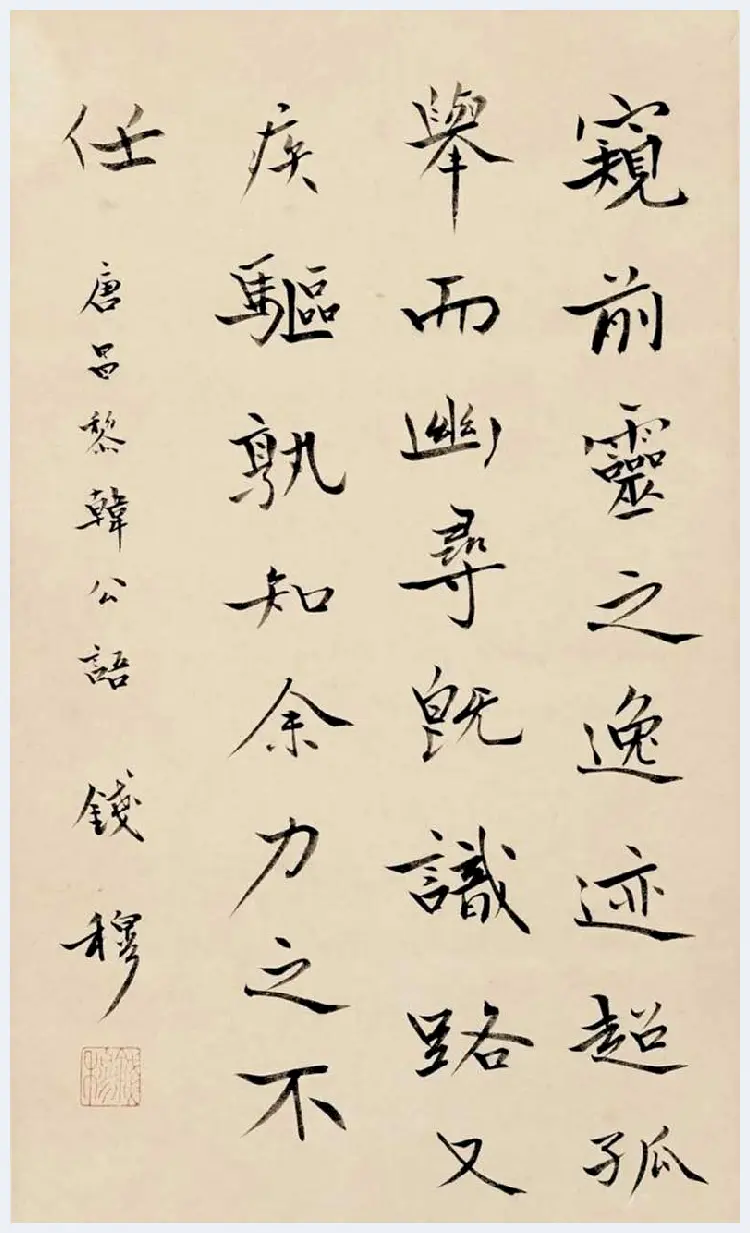 窺前靈之逸迹超孤
舉而幽尋既識路又
疾驅孰知余力之不
任
唐昌黎韓公語 錢穆
錢穆